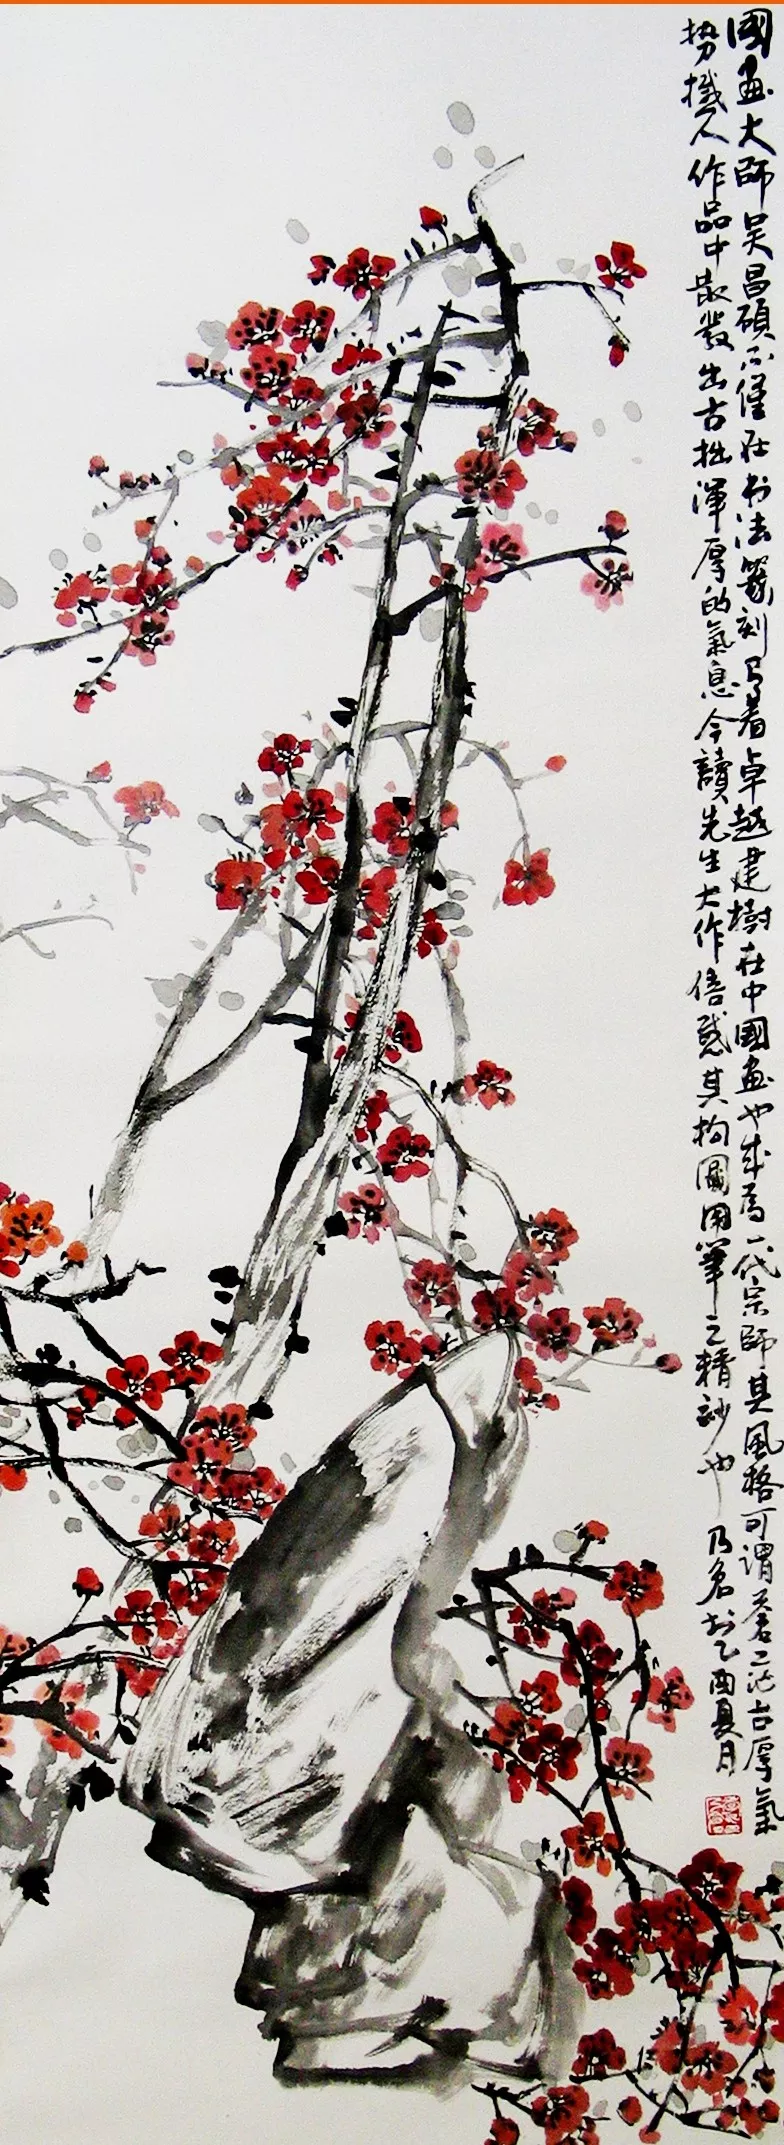 國画大師吴昌碩不僅在书法篆刻有着卓越建樹在中國画也成為一代宗師其風格可谓蒼茫古厚氣
势撼人作品中散發出古拙渾厚的氣息今讀先生大作倍感其构圖用筆之精妙也 乃名于乙酉夏月